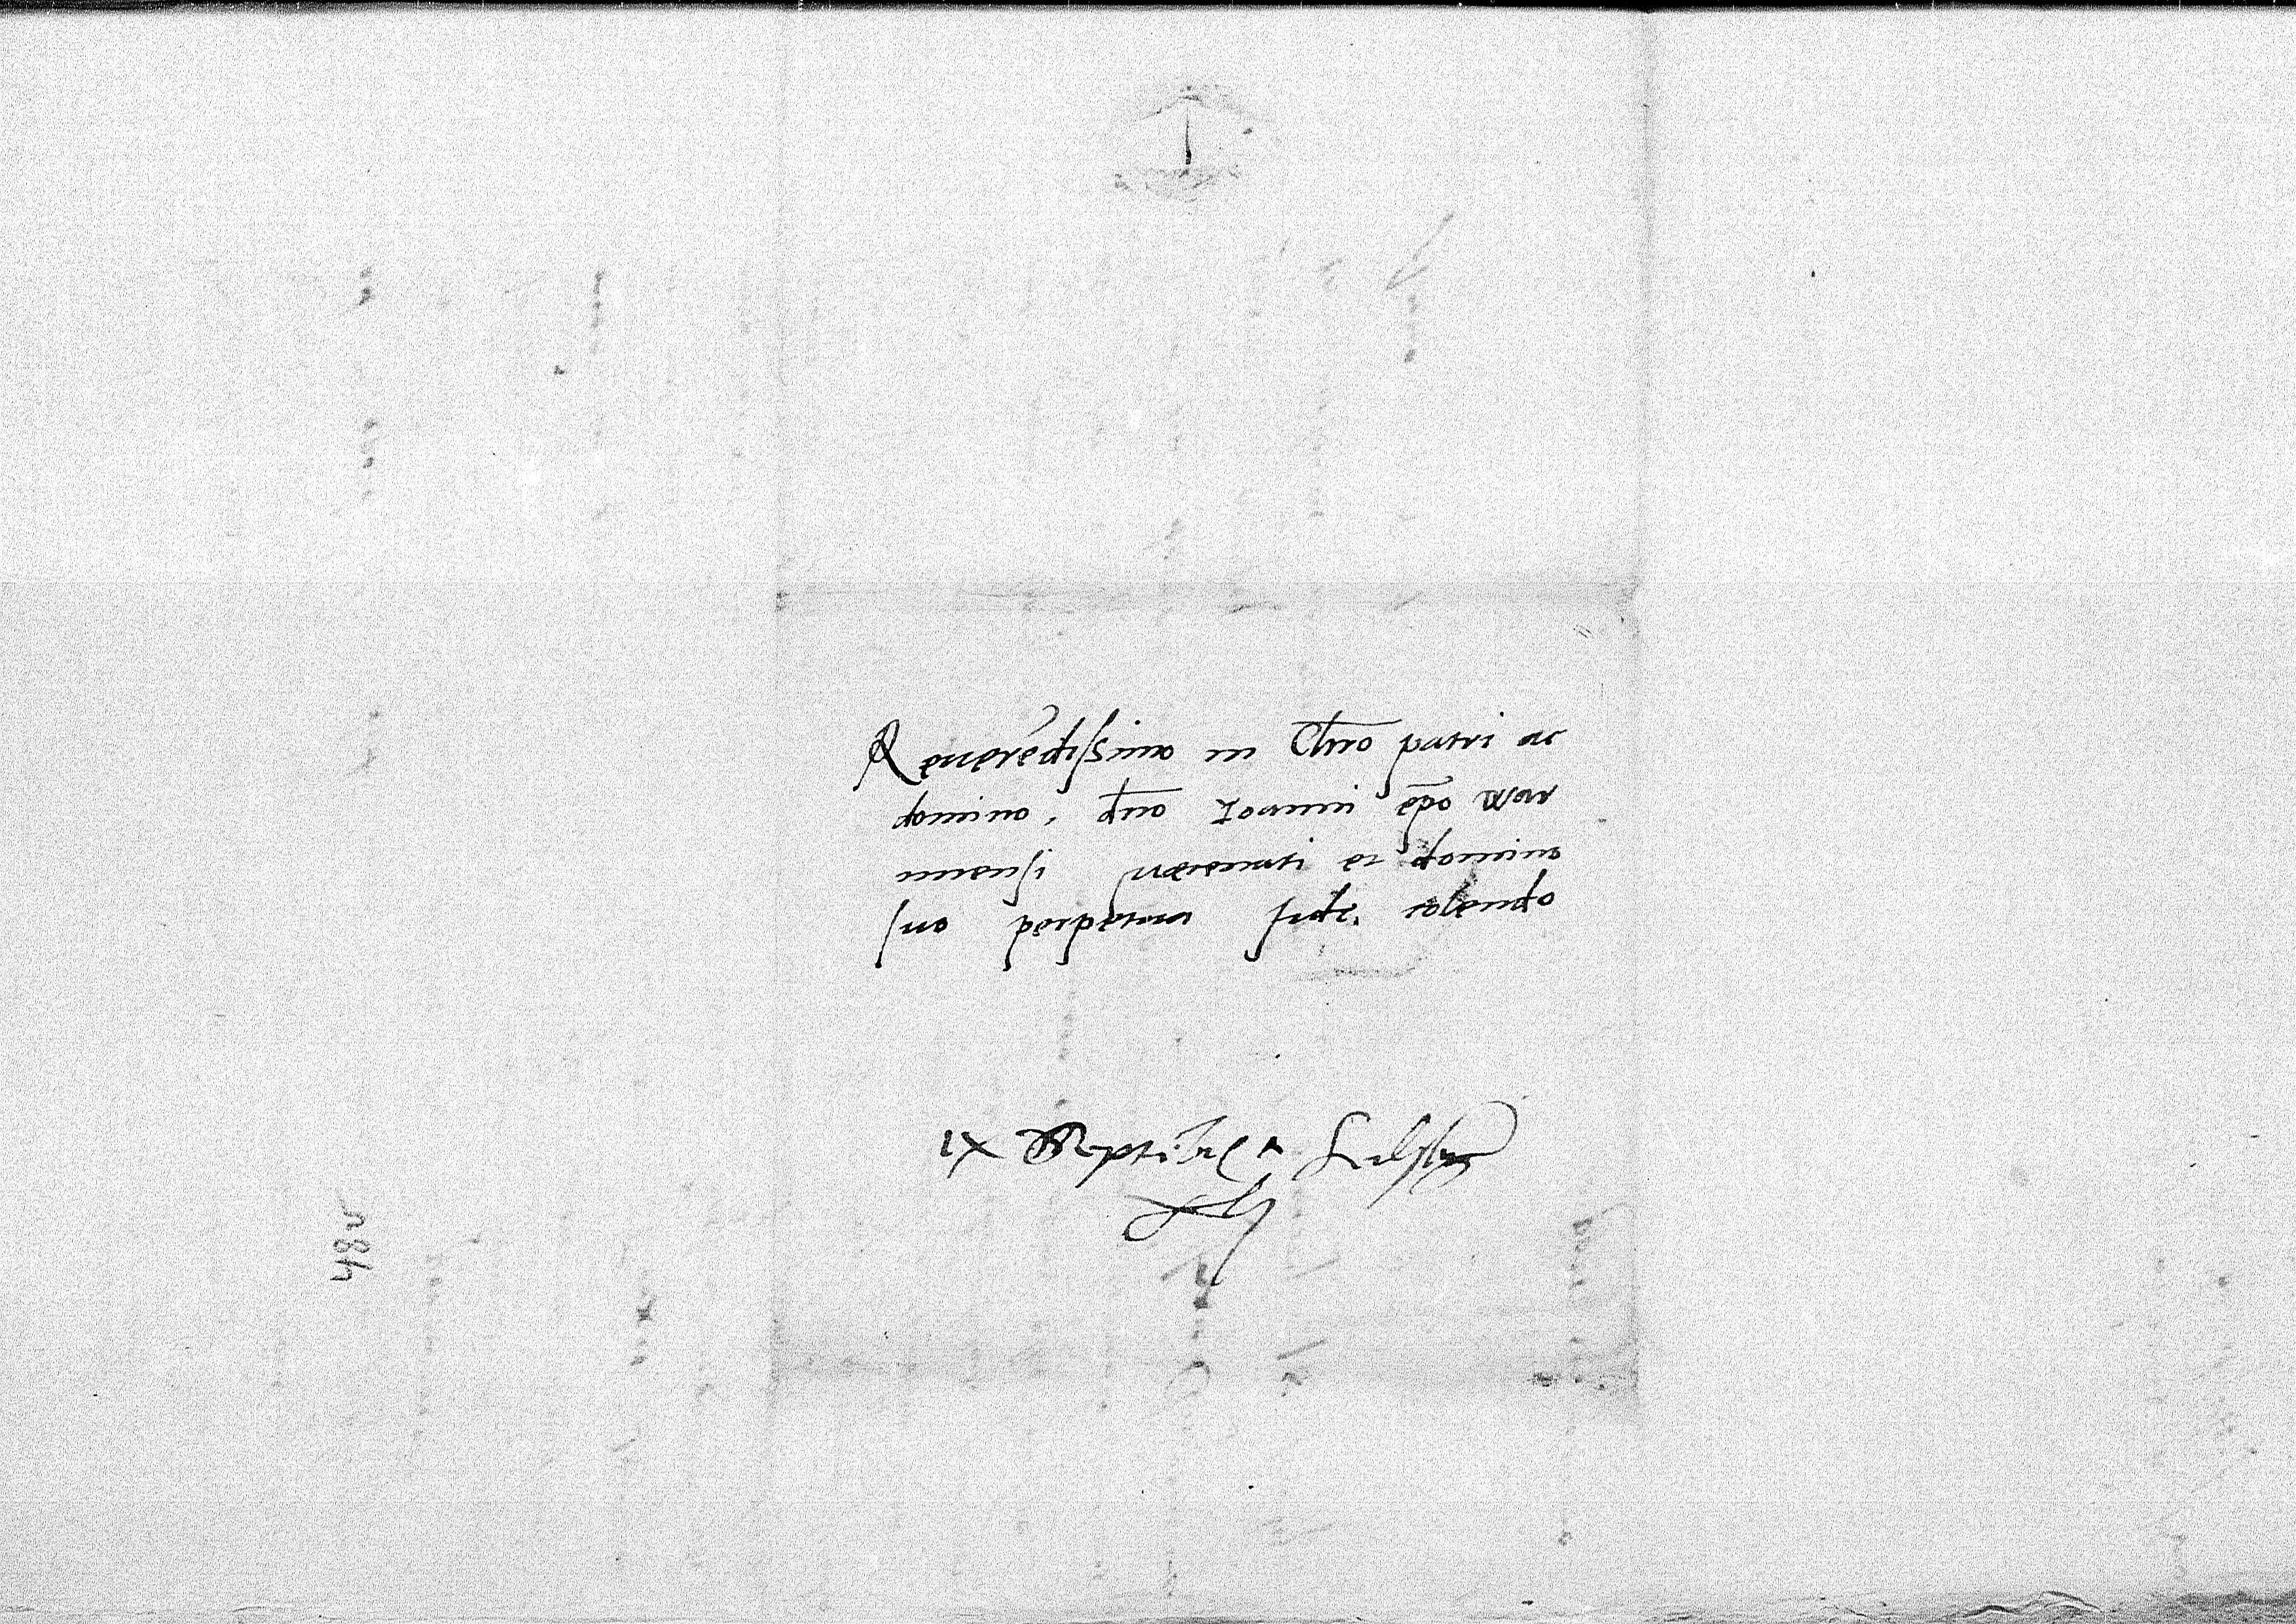 Reuerēdissimo in Chro patri ac
domino, dno Ioanni epo War
miensi et domino
suo perpetua fide colendo
IX Septēbr
48